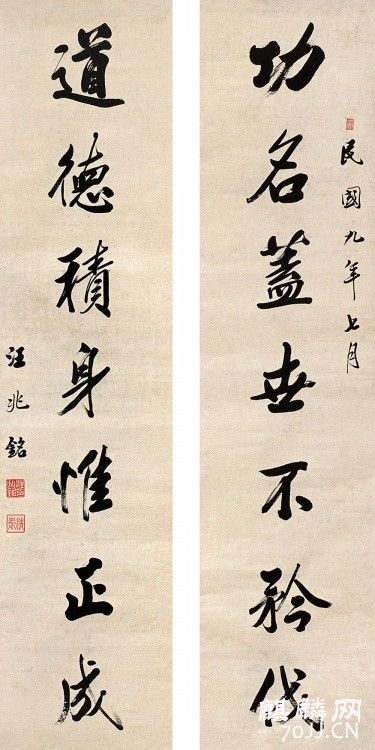 民國九年七月
功名蓋世不矜伐
道德積身惟正成
汪兆銘
麒麟网
70JJ.CN